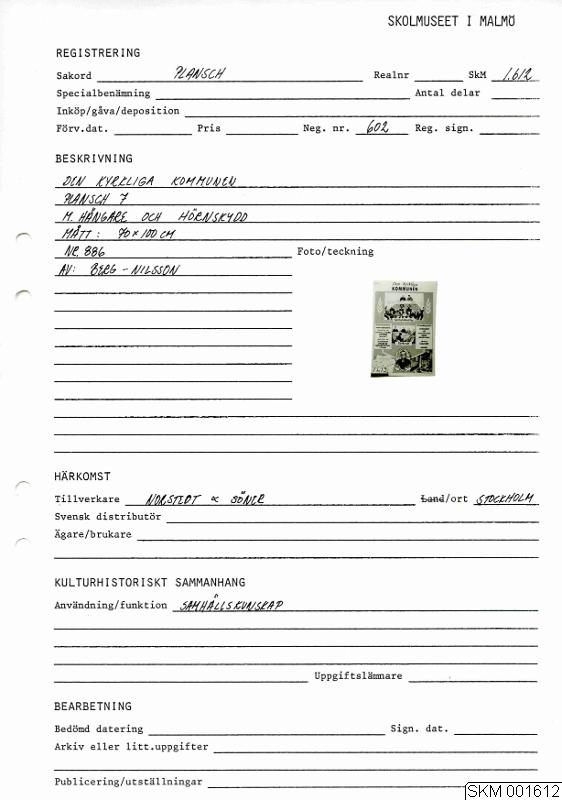 SKOLMUSEET I MALMÖ
REGISTRERING
Sakord PLANSCH Realnr SkM 1.612
Specialbenämning Antal delar
Inköp/gåva/deposition
Förv.dat. Pris Neg. nr. 602 Reg. sign.
BESKRIVNING
DEN KYRKLIGA KOMMUNEN
PLANSCH 7
M. HÄNGARE OCH HÖRNSKYDD
MÅTT: 70 x 100 CM
NR. 886
Foto/teckning
AV: BERG - NILSSON
Den kyrkliga
KOMMUNEN
1612
HÄRKOMST
Tillverkare NORSTEDT & SÖNER Land/ort STOCKHOLM
Svensk distributör
Ägare/brukare
KULTURHISTORISKT SAMMANHANG
Användning/funktion SAMHÄLLSKUNSKAP
Uppgiftslämnare
BEARBETNING
Bedömd datering Sign. dat.
Arkiv eller litt.uppgifter
Publicering/utställningar
SKM 001612